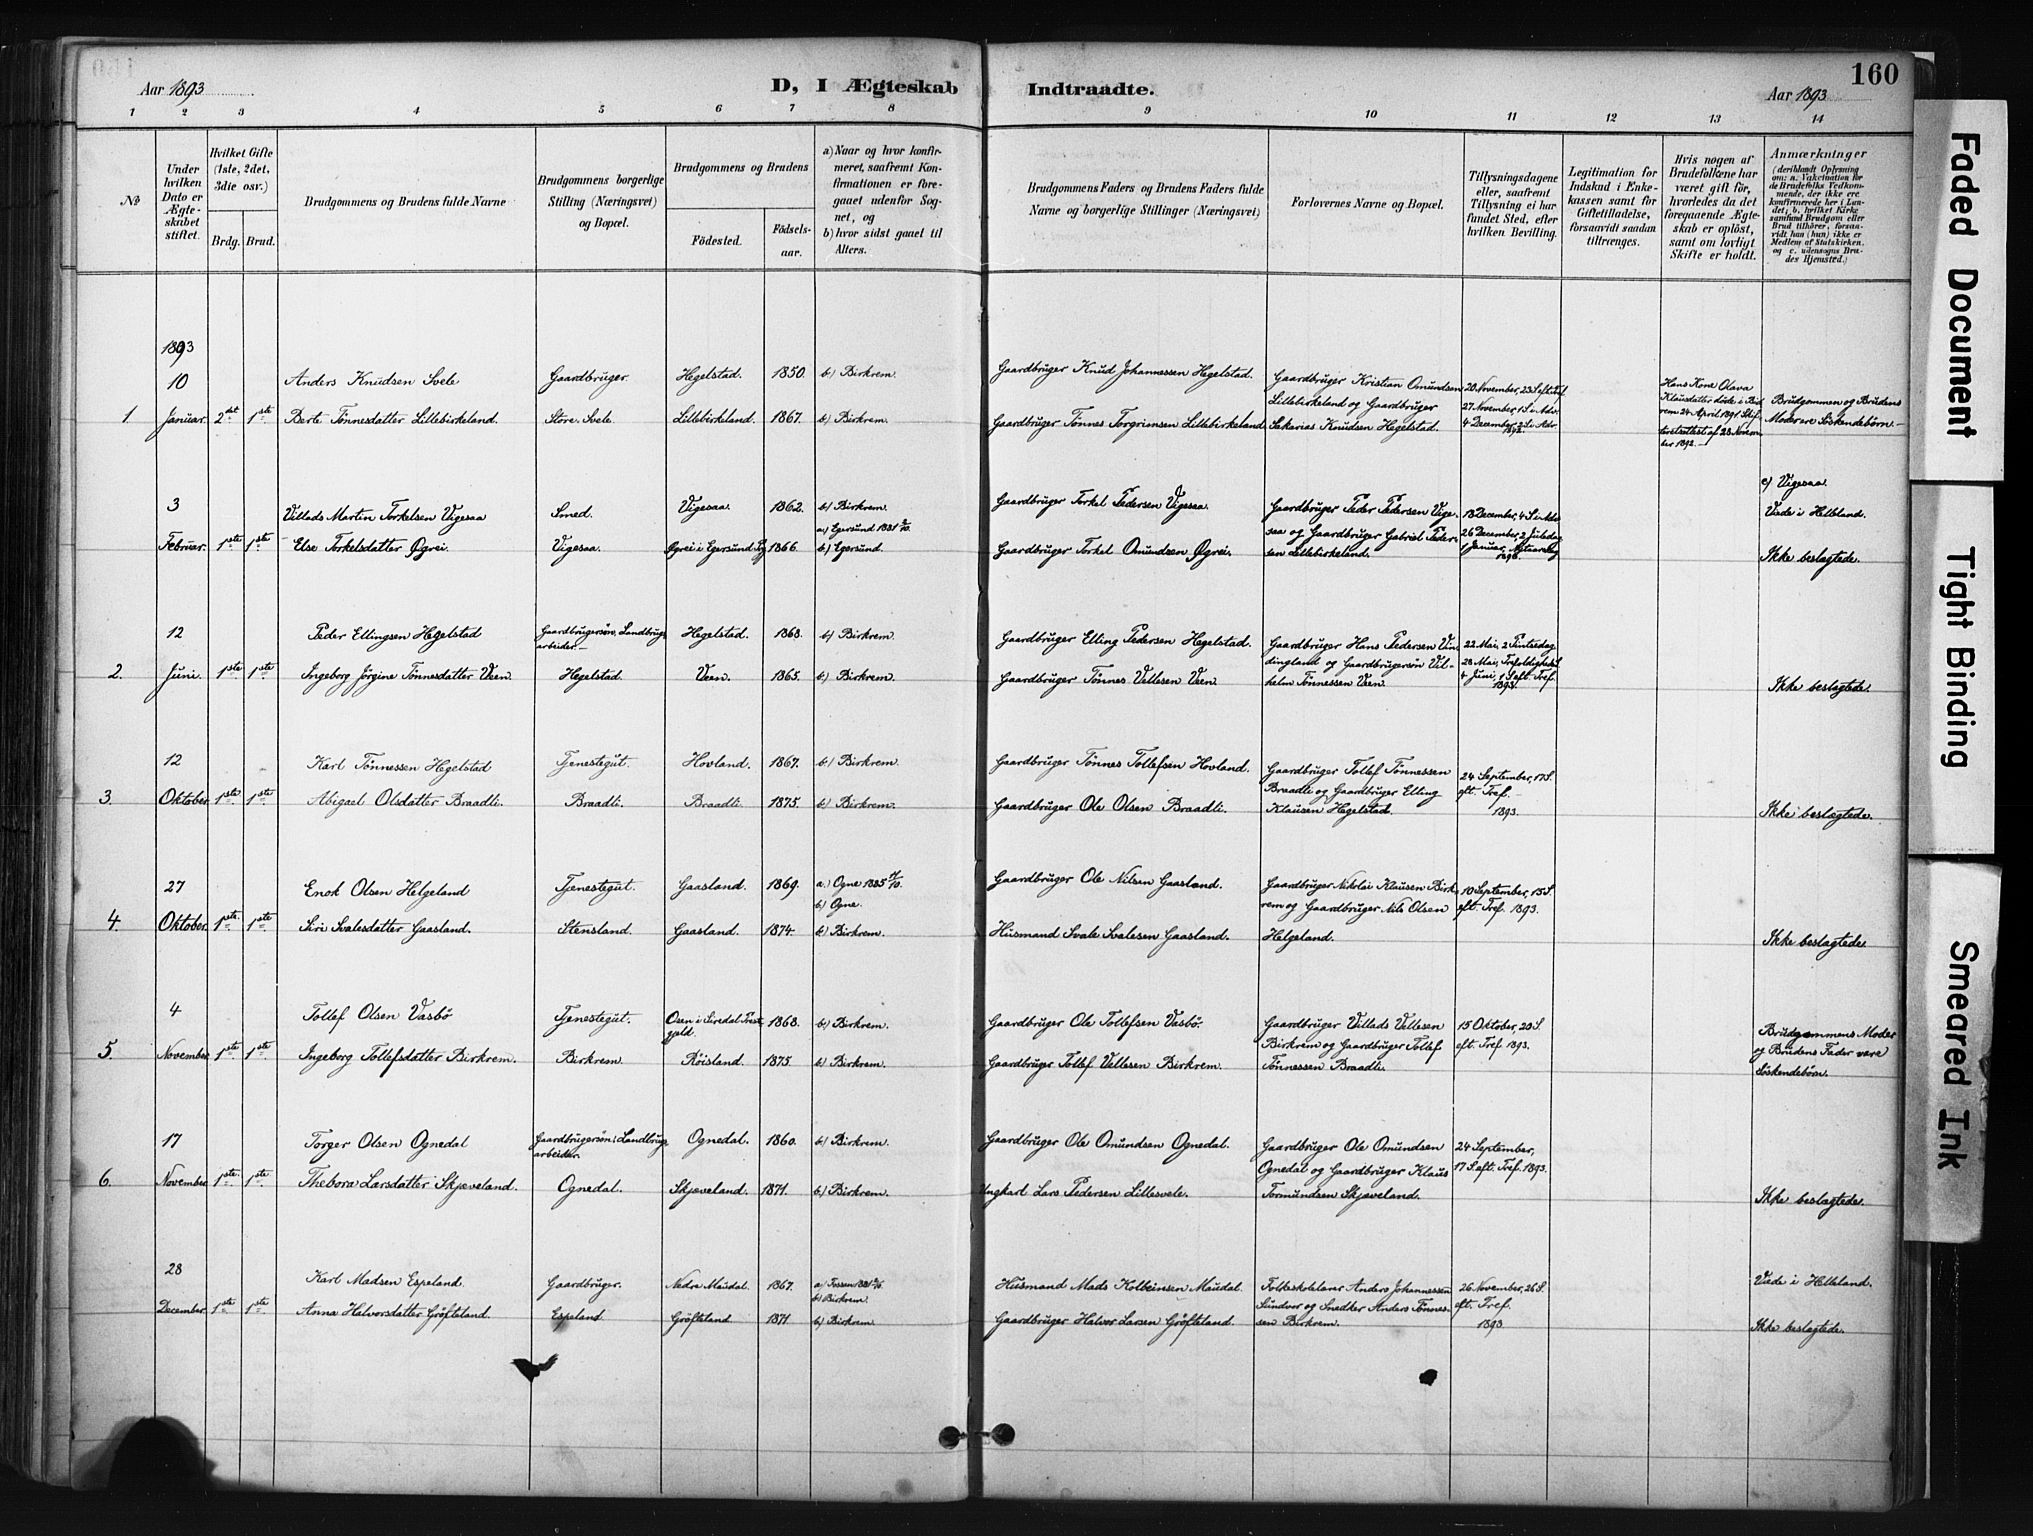 160
Aar 1893
D, I Ægteskab Indtraadte.
Aar 1893
1 2 3 4 5 6 7 8 9 10 11 12 13 14
No
Under hvilken Dato er Ægteskabet stiftet.
Hvilket Gifte (1ste, 2det, 3die osv.)
Brdg. Brud.
Brudgommens og Brudens fulde Navne
Brudgommens borgerlige Stilling (Næringsvei) og Bopæl.
Brudgommens og Brudens
Födested.
Födsels-aar.
a) Naar og hvor konfirmeret, saafremt Konfirmationen er foregaaet udenfor Sognet, og
b) hvor sidst gaaet til Alters.
Brudgommens Faders og Brudens Faders fulde Navne og borgerlige Stillinger (Næringsvei)
Forlovernes Navne og Bopæl.
Tillysningsdagene eller, saafremt Tillysning ei har fundet Sted, efter hvilken Bevilling.
Legitimation for Indskud i Enkekassen samt for Giftetilladelse, forsaavidt saadan tiltrænges.
Hvis nogen af Brudefolkene har været gift för, hvorledes da det foregaaende Ægteskab er oplöst, samt om lovligt Skifte er holdt.
Anmærkninger
(deriblandt Oplysning om: a. Vakcination for de Brudefolks Vedkommende, der ikke ere konfirmerede her i Landet; b. hvilket Kirkesamfund Brudgom eller Brud tilhörer, forsaavidt han (hun) ikke er Medlem af Statskirken, og c. udensogns Brudes Hjemsted.)
1893
1. 10 Januar. 2det 1ste
Anders Knudsen Svele
Berte Tönnesdatter Lillebirkeland.
Gaardbruger.
Store Svele.
Hegelstad. 1850. b) Birkrem.
Lillebirkeland. 1867. b) Birkrem.
Gaardbruger Knud Johannessen Hegelstad.
Gaardbruger Tönnes Torgrimsen Lillebirkeland
Gaardbruger Kristian Omundsen
Lillebirkeland og Gaardbruger
Sakarias Knudsen Hegelstad.
20 November, 23 S. eft. Tref.
27 November, 1 S. i Adv.
4 December, 2 S. i Adv.
1892.
Hans Kone Olava
Klausdatter döde i Birk
rem 24 April 1891. Skif
teretsattest af 28 Novem
ber 1892.
Brudgommen og Brudens
Moder ere Söskendebörn.
3 Februar. 1ste 1ste
Villads Martin Torkelsen Vigesaa
Else Torkelsdatter Øgrei.
Smed.
Vigesaa.
Vigesaa. 1862. b) Birkrem.
a) Egersund 1881 2/10.
Øgrei i Egersund Pg 1866. b) Egersund.
Gaardbruger Torkel Pedersen Vigesaa.
Gaardbruger Torkel Omundsen Øgrei.
Gaardbruger Peder Pedersen Vige-
saa og Gaardbruger Gabriel Peder-
sen Lillebirkeland.
18 December, 4 S. i Adv.
26 December, 2 Juledag
1 Januar, Nytaarsdag
1893.
c) Vigesaa.
Viede i Helleland.
Ikke beslægtede.
2. 12 Juni. 1ste 1ste
Peder Ellingsen Hegelstad
Ingeborg Jörgine Tönnesdatter Veen.
Gaardbrugersön, Landbrugs
arbeider.
Hegelstad.
Hegelstad. 1868. b) Birkrem.
Veen. 1865. b) Birkrem.
Gaardbruger Elling Pedersen Hegelstad.
Gaardbruger Tönnes Vellesen Veen.
Gaardbruger Hans Pedersen Vin
dingland og Gaardbrugersön Vil-
helm Tönnessen Veen.
22 Mai, 2 Pintsedag
28 Mai, Trefoldigheds S.
4 Juni, 1 S. eft. Tref.
1893.
Ikke beslægtede.
3. 12 Oktober. 1ste 1ste
Karl Tönnessen Hegelstad
Abigael Olsdatter Braadli.
Tjenestegut.
Braadli.
Hovland. 1867. b) Birkrem.
Braadli. 1875. b) Birkrem.
Gaardbruger Tönnes Tollefsen Hovland.
Gaardbruger Ole Olsen Braadli.
Gaardbruger Tollef Tönnessen
Braadli og Gaardbruger Elling
Klausen Hegelstad.
24 September, 17 S.
eft. Tref.
1893.
Ikke beslægtede.
4. 27 Oktober. 1ste 1ste
Enok Olsen Helgeland
Siri Svalesdatter Gaasland.
Tjenestegut.
Stensland.
Gaasland. 1869. a.) Ogne 1885 4/10.
b) Ogne.
Gaasland. 1874. b) Birkrem.
Gaardbruger Ole Nilsen Gaasland.
Husmand Svale Svalesen Gaasland.
Gaardbruger Nikolai Klausen Birk-
rem og Gaardbruger Nils Olsen
Helgeland.
10 September, 15 S.
eft. Tref. 1893.
Ikke beslægtede.
5. 4 November. 1ste 1ste
Tollef Olsen Vasbö
Ingeborg Tollefsdatter Birkrem.
Tjenestegut.
Birkrem.
Osen i Siredal Prest
gjeld. 1868. b) Birkrem.
Röisland. 1875. b) Birkrem.
Gaardbruger Ole Tollefsen Vasbö.
Gaardbruger Tollef Vellesen Birkrem.
Gaardbruger Villads Vellesen
Birkrem og Gaardbruger Tollef
Tönnessen Braadli.
15 Oktober, 20 S.
eft. Tref. 1893.
Brudgommens Moder
og Brudens Fader vare
Söskendebörn.
6. 17 November. 1ste 1ste
Torger Olsen Ognedal
Thebora Larsdatter Skjæveland.
Gaardbrugersön, Landbrugs
arbeider.
Ognedal.
Ognedal. 1860. b) Birkrem.
Skjæveland. 1871. b) Birkrem.
Gaardbruger Ole Omundsen Ognedal.
Ungkarl Lars Pedersen Lillesvele.
Gaardbruger Ole Omundsen
Ognedal og Gaardbruger Klaus
Tormundsen Skjæveland.
24 September,
17 S. eft. Tref. 1893.
Ikke beslægtede.
28 December. 1ste 1ste
Karl Madsen Espeland
Anna Halvorsdatter Gröfteland.
Gaardbruger.
Espeland.
Nedre Maudal. 1867.
b) Birkrem.
Gröfteland 1871 b) Birkrem.
Husmand Mads Kolbeinsen Maudal.
Gaardbruger Halvor Larsen Gröfteland.
Folkeskolelærer Anders Johannessen
Sundvor og Snedker Anders Tönnes-
sen Birkrem.
26 November, 26 S.
eft. Tref.
1893
Viede i Helleland.
Ikke beslægtede.
Faded Document
Tight Binding
Smeared Ink